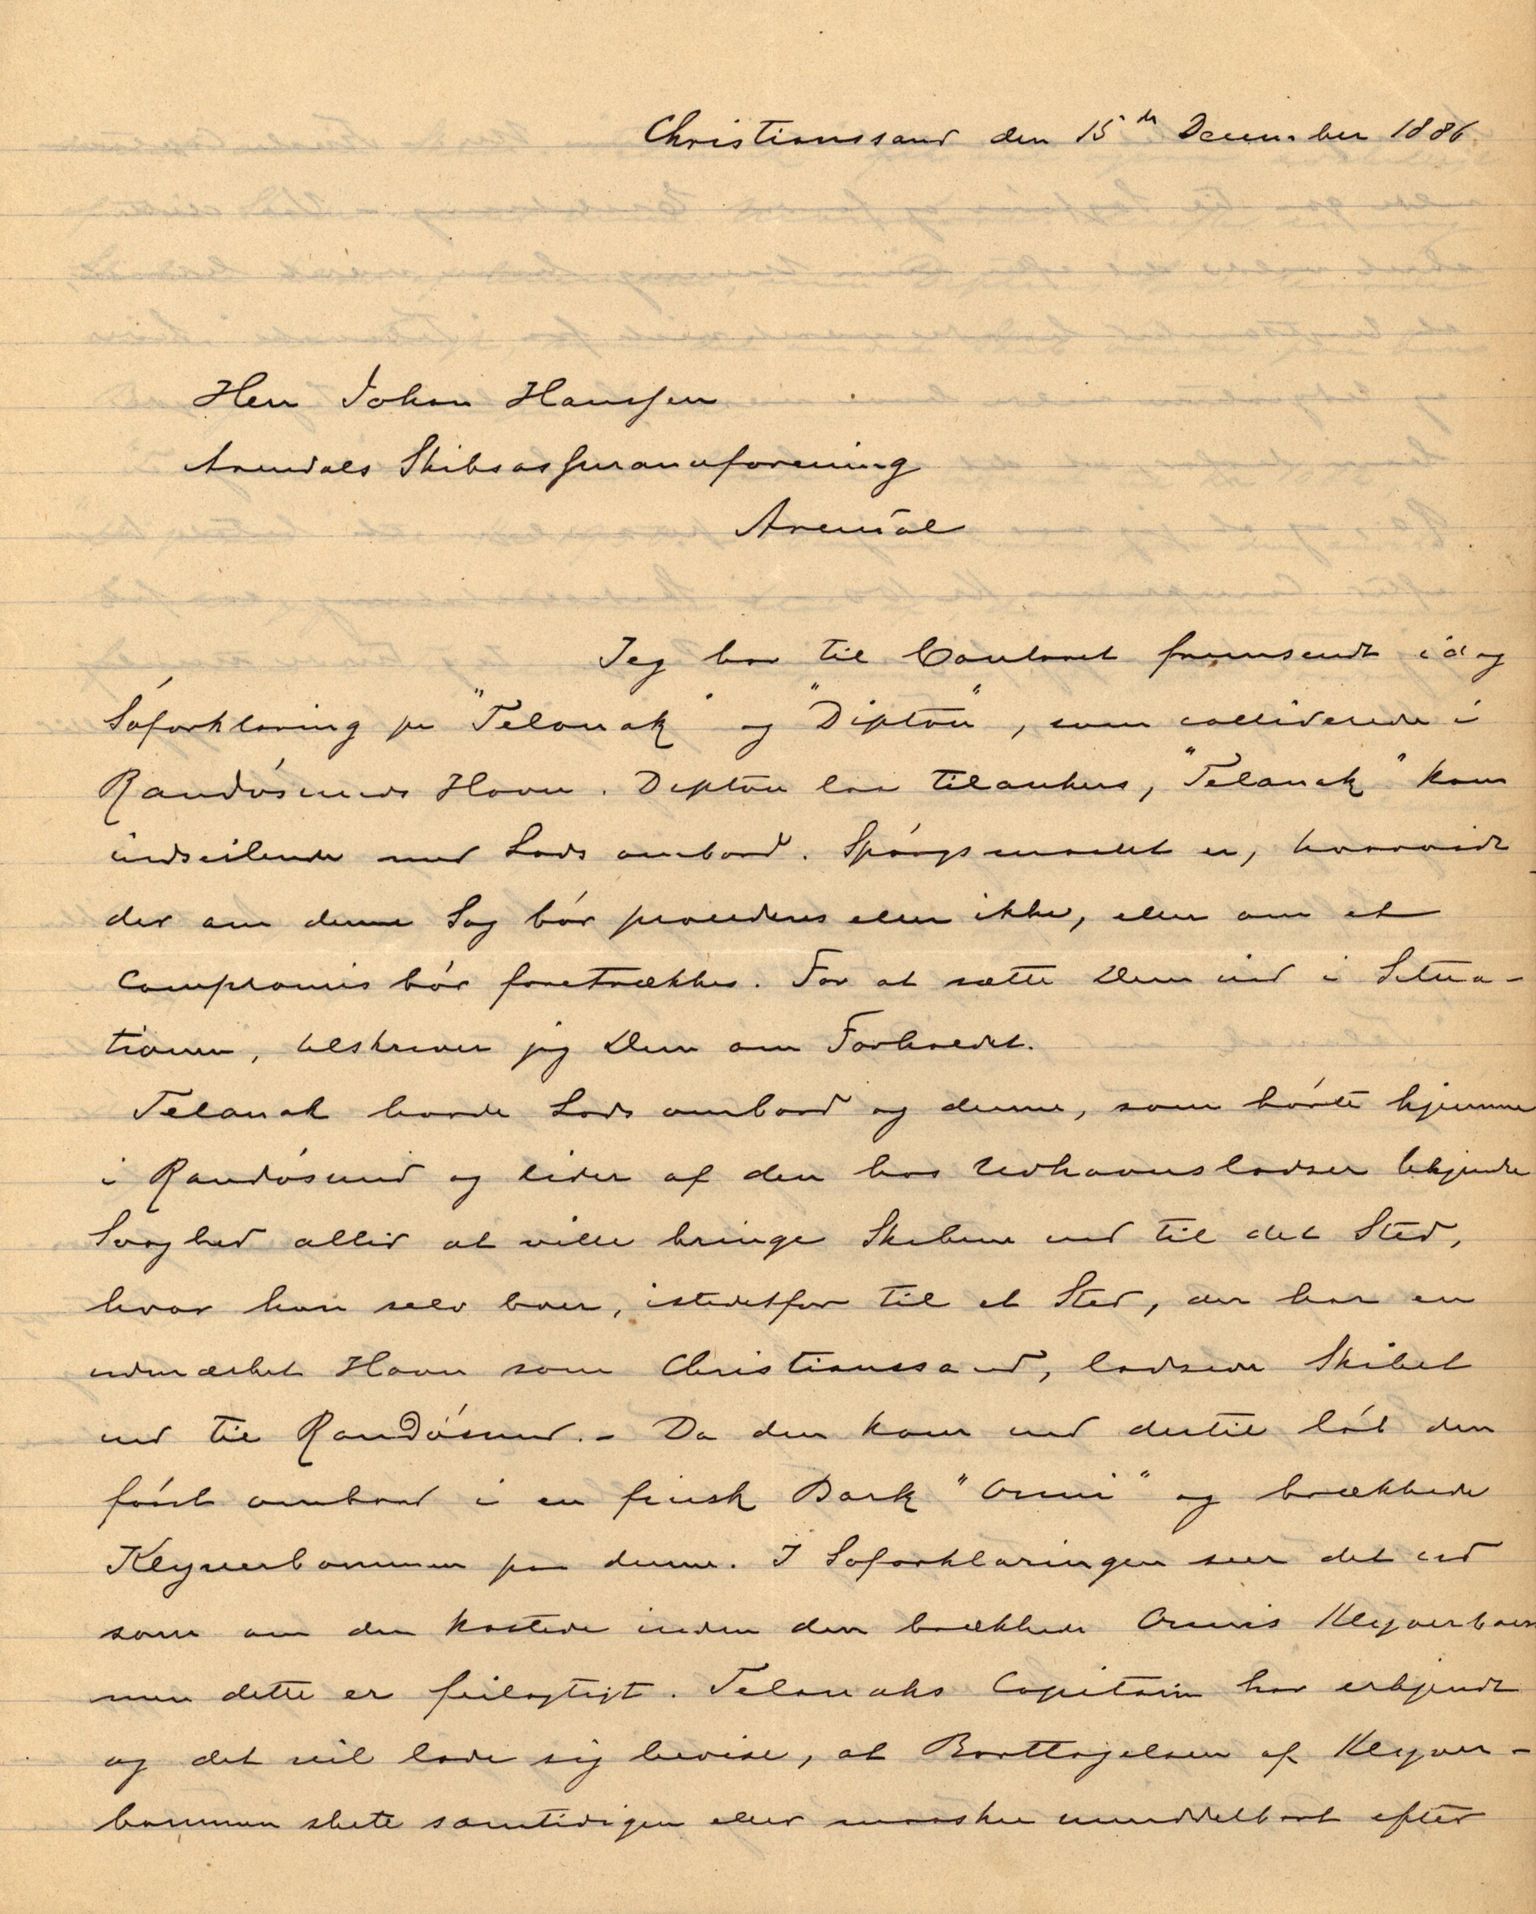 Christianssand den 15de December 1886
Herr Johan Hanssen
Arendals Skibsassuranceforening
Arendal
Jeg har til Contoret fremsendt idag
Søforklaring pr "Telanak" og "Dipton", som colliderede i
Randøsunds Havn. Dipton laa tilankers, "Telanak" kom
indseilende med Lods ombord. Spørgsmaalet er, hvorvidt
der om denne Sag bør procederes eller ikke, eller om et
Compromis bør foretrækkes. For at sætte Dem ind i Situa-
tionen, tilskriver jeg Dem om Forholdet.
Telanak havde Lods ombord og denne, som hørte hjemme
i Randøsund og lider af den hos Udhavnslodser bekjendte
Svaghed altid at ville bringe Skibene ind til det Sted,
hvor han selv boer, istedetfor til et Sted, der har en
udmærket Havn som Christianssand, lodsede Skibet
ind til Randøsund. - Da den kom ind dertil løb den
først ombord i en finsk Bark "Onni" og brækkede
Klyverbommen paa denne. I Søforklaringen seer det ud
som om den kastede inden den brækkede Onnis Klyverbom
men dette er feilagtigt. Telanaks Capitain har erkjendt
og det vil lade sig bevise, at Borttagelsen af Klyver-
bommen skete samtidigen eller maaske umiddelbart efter